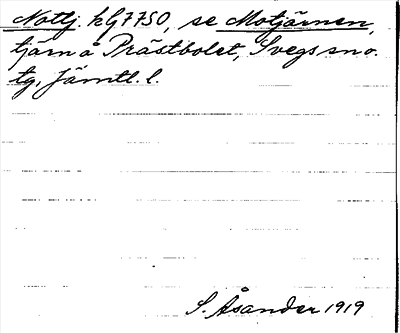 Nottj. kG7750, se Motjärnen,
tjärn å Prästbolet, Svegs sno.
tg, Jämtl. l.
S. Åsander 1919